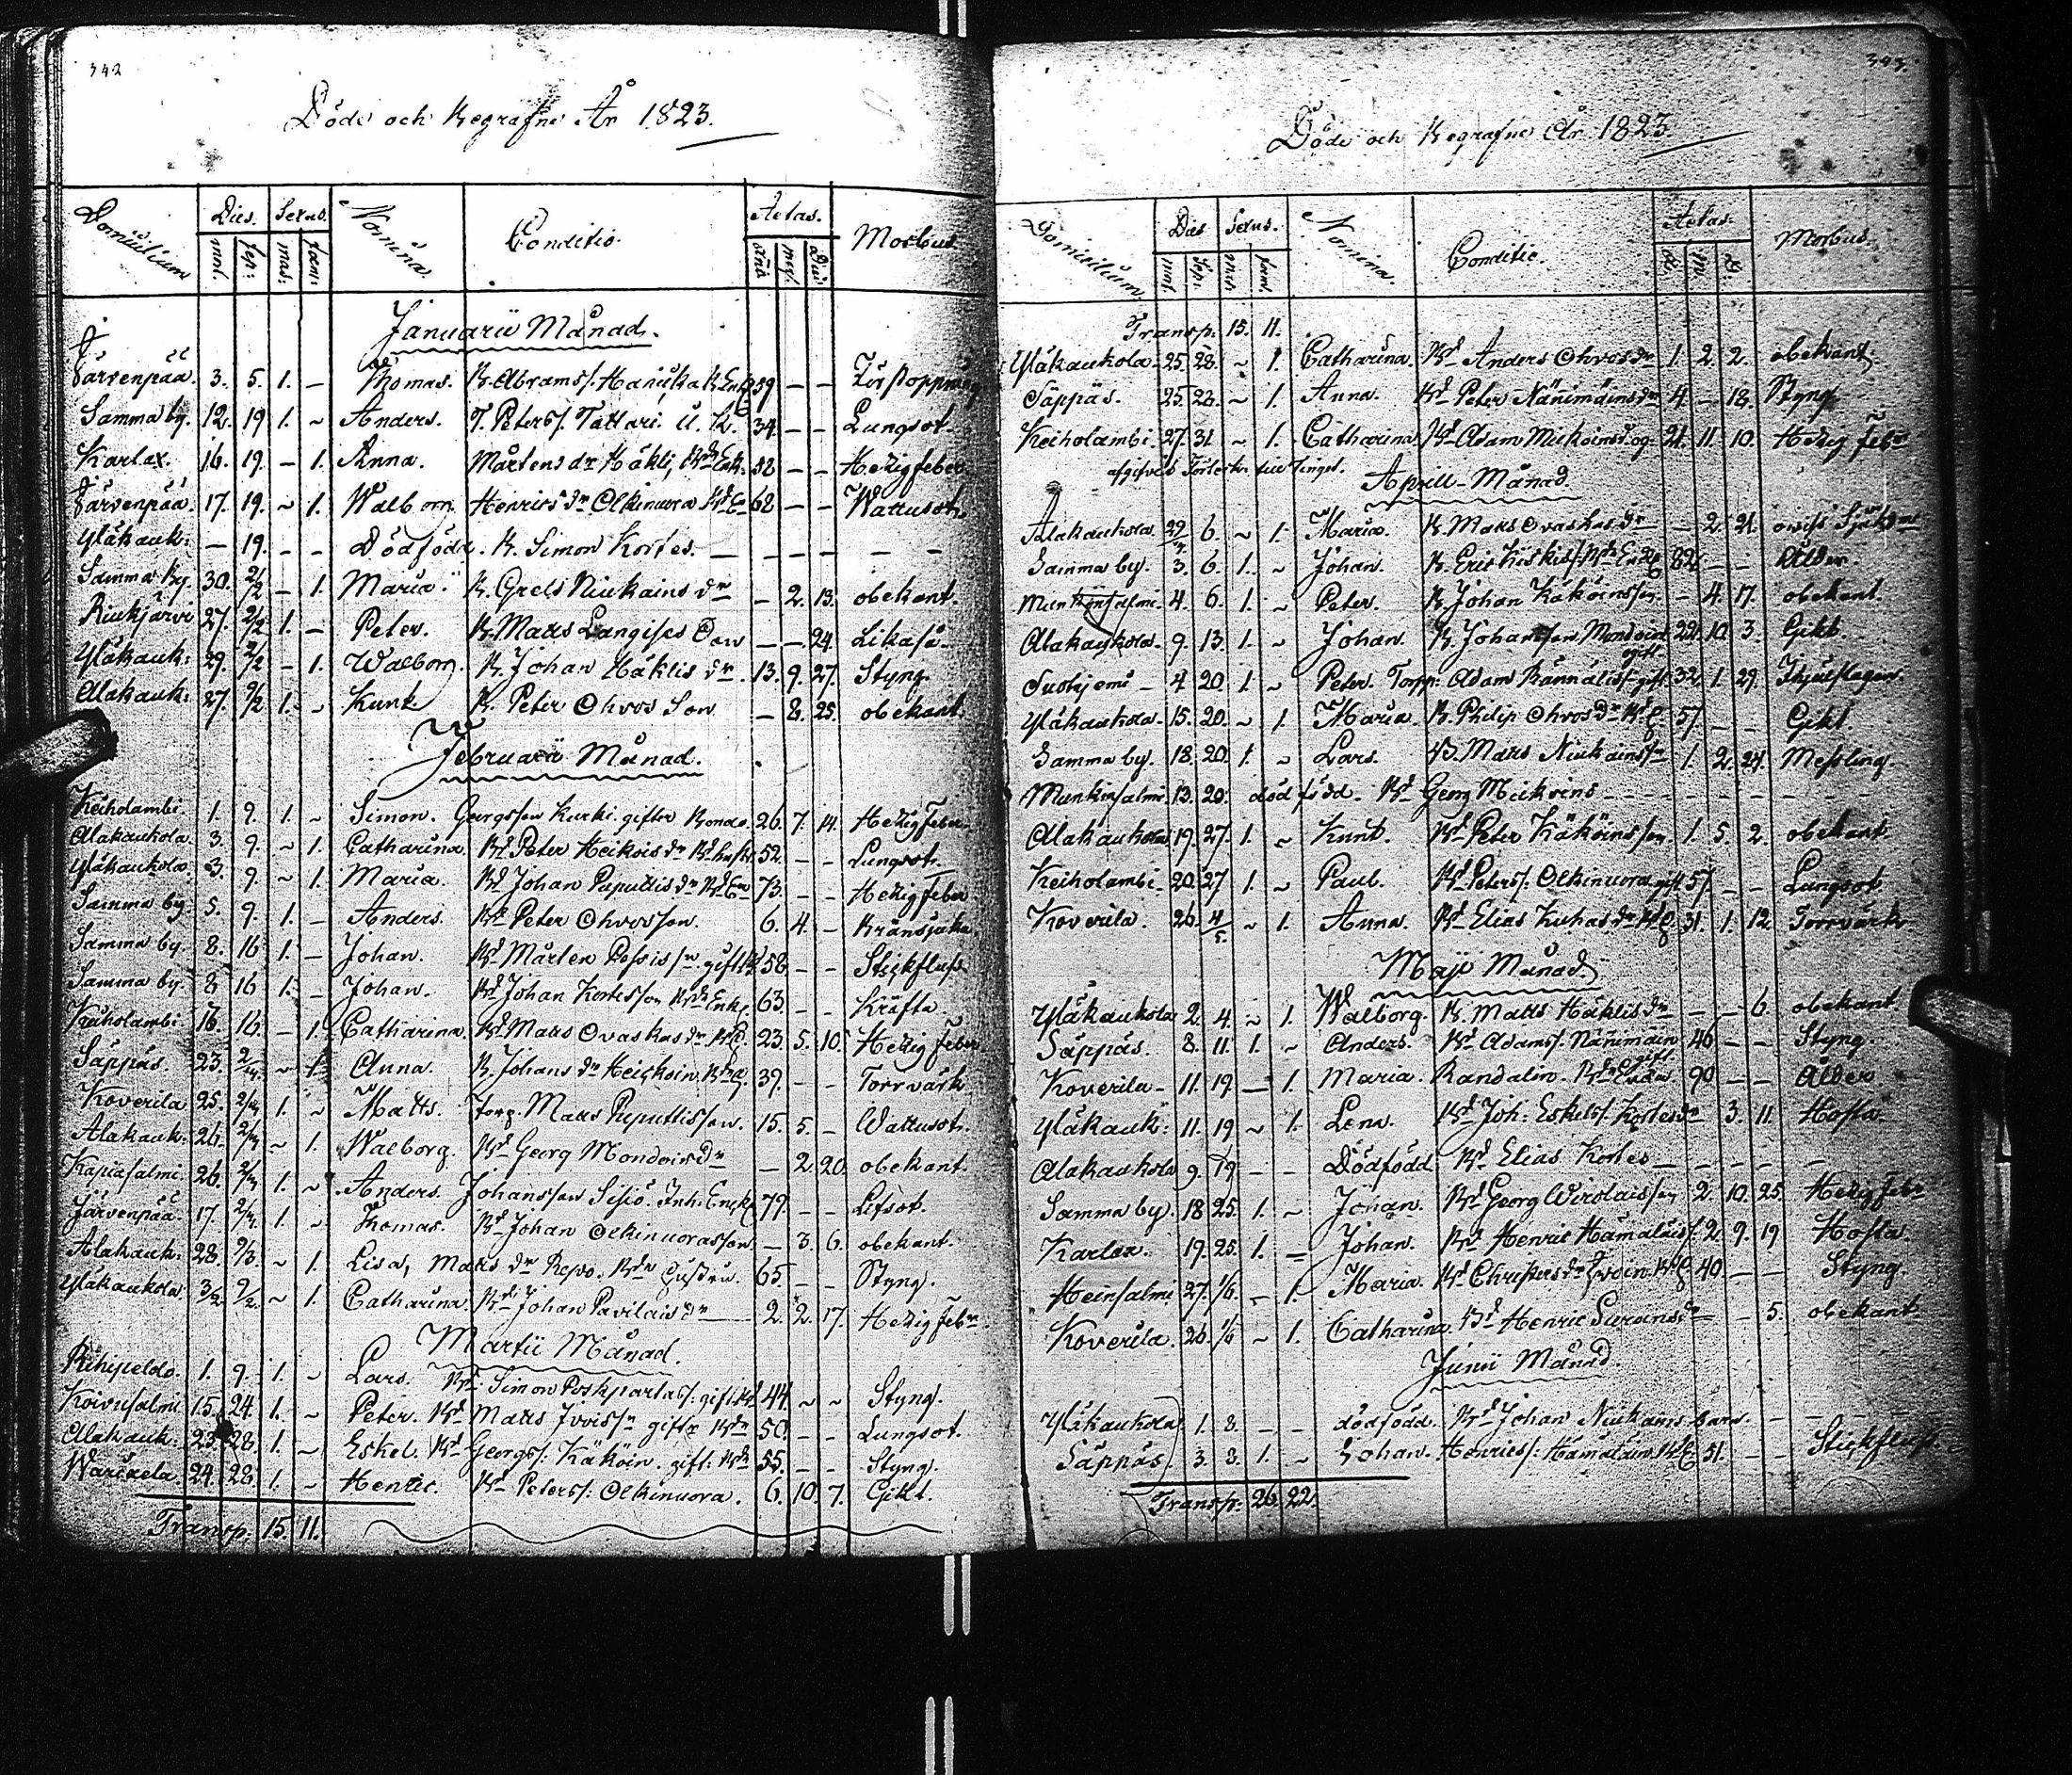 342
Döde och Begrafne År 1823.
Domicilium Dies. Sexus. Nomina. Conditio. Aetas. Morbus.
mort. sep: mas: fœm: men. dies
Januarii Månad.
Järvenpää. 3. 5. 1. — Thomas. B. Abramss. 59 — —
Samma by. 12. 19 1. ~ Anders. T. Peterss. Tattari. 34 — — Lungsot.
Karlax. 16. 19. — 1. Anna. Mårtens dr Häkli, 52 — — Hetzig feber.
Järvenpää. 17. 19. ~ 1. Walborg Henrics dr Olkinuora 62 — — Wattusot.
Yläkauk: — 19. — — Dödfödd. B. Simon Kortes. — — — — —
Samma by. 30. 2/2 — 1. Maria. B. Grels Niukains dr — 2. 13. obekant.
Riukjärvi 27. 2/2 1. — Peter. B. Matts Langises Son — — 24. Likaså.
Yläkauk: 29. 2/2 — 1. Walborg. B. Johan Häklis dr. 13. 9. 27. Styng.
Alakauk: 27. 9/2 1. ~ Knut. B. Peter Ohvos Son — 8. 25. obekant.
Februarii Månad.
Keiholambi 1. 9. 1. ~ Simon. Georgsson Kurki. gifter Bonde. 26. 7. 14. Hetzig Feber.
Alakaukola 3. 9. ~ 1. Catharina. Bd Peter Heikois dr 52. — — Lungsot.
Yläkaukola. 3. 9. ~ 1. Maria. Bd Johan Paputtis dr 73. — — Hetzig feber
Samma by 5. 9. 1. — Anders. Bd Peter Ohvosson. 6. 4. — Bränsjuka.
Samma by. 8. 16 1. — Johan. Bd Mårten 58 — — Stickfluss
Samma by. 8 16 1. — Johan. Bd Johan Kortesson 63. — — Kräfta.
Keiholambi 16. 16. — 1. Catharina. Bd Matts Ovaskas dr 23. 5. 10. Hetzig feber.
Säppäs. 23. ~ 1. Anna. B. Johans dr Heickoin. 39. — — Torrvärk
Koverila 25. 1. ~ Matts. Torp. Matts Puputtisson. 15. 5. — Wattusot.
Alakauk: 26. ~ 1. Walborg. Bd Georg Mondoins dr — 2. 20. obekant.
26. 1. ~ Anders. Johansson Sisiö. Inh: Enckl. 79. — — Lifsot.
Järvenpää. 17. 1. ~ Thomas. Bd Johan Olkinuorasson — 3. 6. obekant.
Alakauk: 28. 9/3 ~ 1. Lisa, Matts dr Repo. Bdn Hustru. 65. — — Styng.
Yläkaukola 3/2 9/2. ~ 1. Catharina. Bd Johan Pavilais dr — 2. 2. 17. Hetzig febr.
Martii Månad.
Rihipeldo. 1. 9. 1. ~ Lars. Bd Simon gift 44. ~ ~ Styng.
Koivusalmi 15. 24. 1. ~ Peter. Bd Matts Ivoissn giftr Bdn 50. — — Lungsot.
Alakauk: 23. 28. 1. ~ Eskel. Bd Georgs. Käköin. gift: Bdn 55. — — Styng.
24. 28. 1. ~ Henric. Bd Peterss: Olkinuora. 6. 10. 7. Gikt.
Transp. 15. 11.
343.
Döde och Begrafne År 1823.
Domicilium. Dies Sexus. Nomina. Conditio. Aetas. Morbus.
mort. Sep: mas fœm. M. D.
Transp. 15. 11.
Yläkaukola. 25. 28. ~ 1. Catharina. Bd Anders Ohvos dr 1. 2. 2. obekant.
Säppäs. 25. 28. ~ 1. Anna. Bd Peter Nänimäins dr 4. — 18. Styng.
Keiholambi. 27. 31. ~ 1. Catharina. Bd Adam 21. 11. 10. Hetzig febr
Aprill Månad.
Alakaukola 6. ~ 1. Maria. B. Matts Ovaskas dr — 2. 21.
Samma by. 3. 6. 1. ~ Johan. B. Eric 82. — — Ålder.
Munkinsalmi. 4. 6. 1. ~ Peter. B. Johan Käköinsson. — 4. 17. obekant.
Alakaukola. 9. 13. 1. ~ Johan. B. Johansson Mondoin ogift 22. 10. 3. Gikt.
Suohjemi — 4 20. 1. ~ Peter. Torp: Adam gift 32. 1. 29. Ihjälslagen
Yläkaukola. 15. 20. ~ 1. Maria. B. Philip Ohvos dr 57. — — Gikt.
Samma by. 18. 20. 1. ~ Lars. B. Matts Niukainssn 1. 2. 24. Messling.
Munkinsalmi. 13. 20. död född. Bd Georg Miikoins — — — —
Alakaukola 19. 27. 1. ~ Knut. Bd Peter Käköinsson 1. 5. 2. obekant.
Keiholambi. 20. 27 1. ~ Paul. Bd Peterss. Olkinuora gift 57. — — Lungsot
Koverila. 26. 4/5. ~ 1. Anna. Bd Elias Kuhas dr 31. 1. 12. Torrvärk
Maji Månad.
Yläkaukola 2. 4. ~ 1. Walborg. B. Matts Häklis dr — — 6. obekant
Säppäs. 8. 11. 1. ~ Anders. Bd Adams. Nänimäin gift 46 — — Styng.
Koverila — 11. 19 — 1. Maria. Randalin. 90 — — Ålder
Yläkauk: 11. 19 ~ 1. Lena. Bd Joh: Eskels. Kortes dr 3. 11. Hosta.
Alakaukola 9. 19 — — Dödfödd Bd Elias Kortes — — — —
Samma by. 18. 25. 1. ~ Johan. Bd Georg Wirolaisson 2. 10. 25. Hetzig febr
Karlax. 19. 25. 1. — Johan. Bd Henric Hämäläiss. 2. 9. 19 Hosta.
Heinsalmi 27. 1/6. — 1. Maria. Bd Christers dr 40. — — Styng.
Koverila. 26. 1/6 ~ 1. Catharina. Bd Henric dr — — 5. obekant
Junii Månad.
Yläkaukola 1. 8. — — dödfödd. Bd Johan Niukains barn. — — —
Säppäs. 3. 8. 1. ~ Johan. Henricss: Hämäläin 51. — — Stickfluss.
Transp: 26. 22.